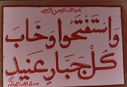 بسم الله الرحمن الرحيم
واستفتحوا وخاب
كل جبار عنيد
صدق الله العظيم